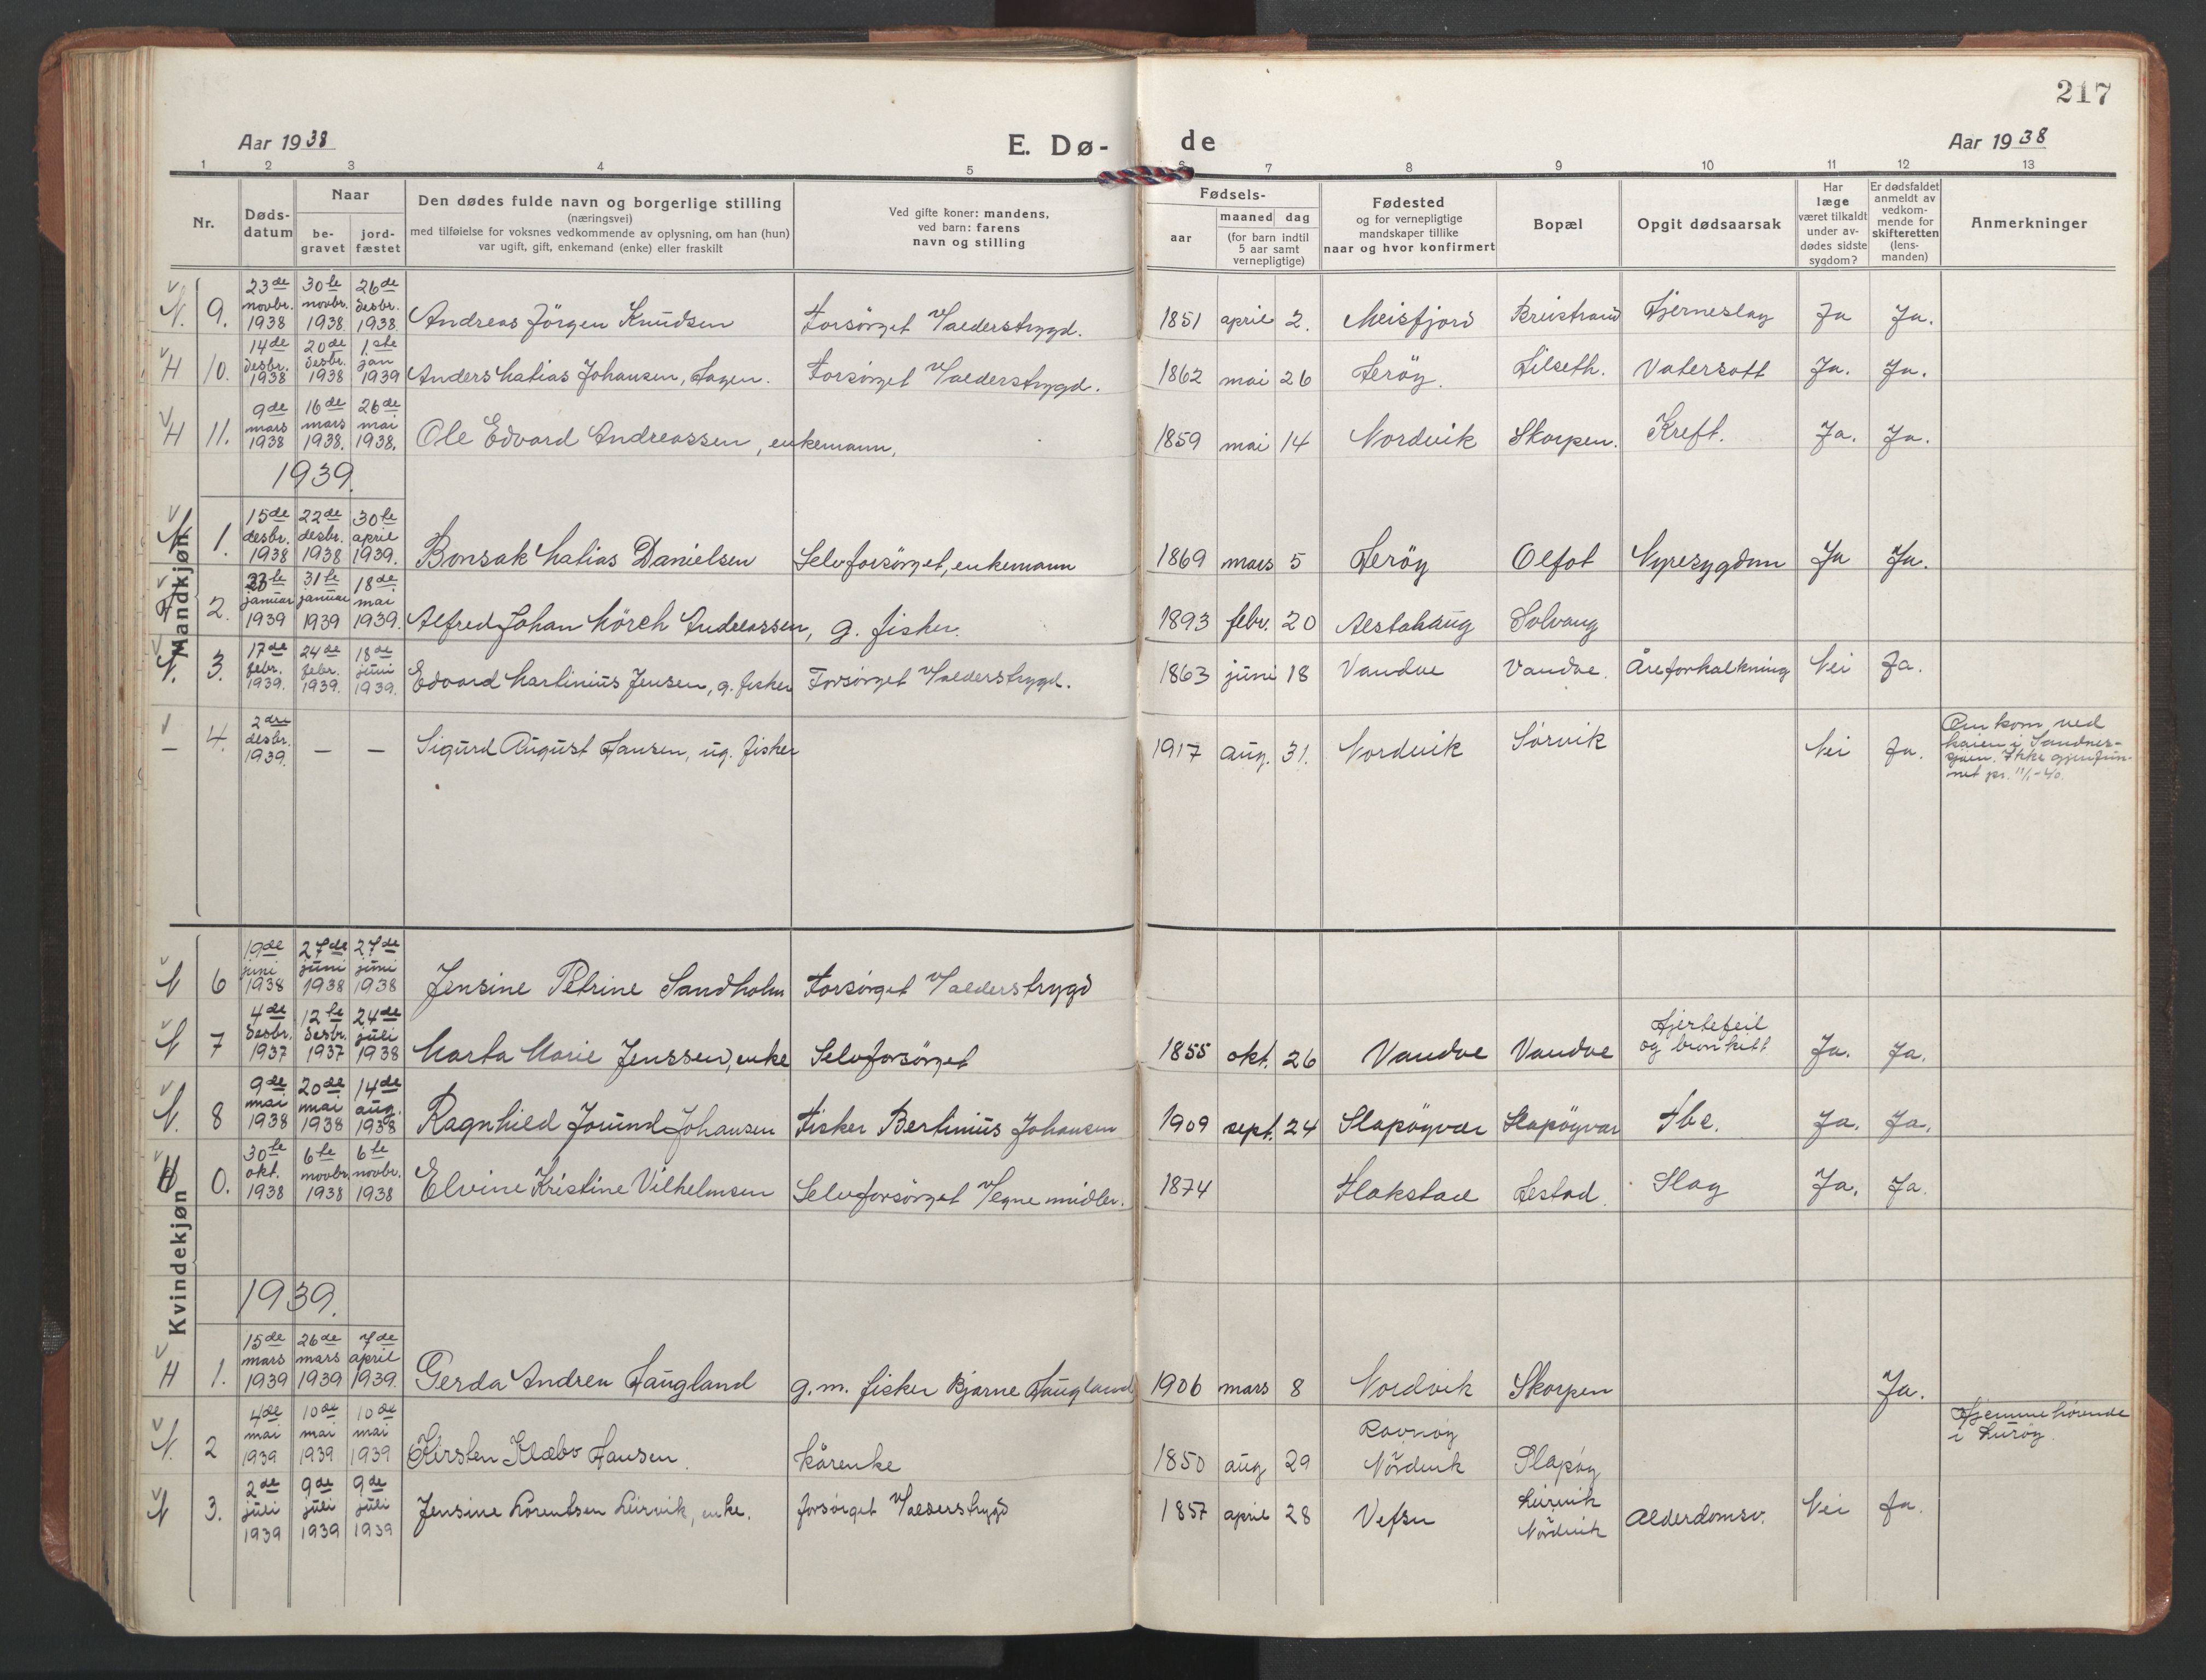 217
Aar 1938 E. Dø- de Aar 1938
1 2 3 4 5 6 7 8 9 10 11 12 13
Nr.
Døds-
datum
Naar
be-
gravet
jord-
fæstet
Den dødes fulde navn og borgerlige stilling
(næringsvei)
med tilføielse for voksnes vedkommende av oplysning, om han (hun)
var ugift, gift, enkemand (enke) eller fraskilt
Ved gifte koner: mandens,
ved barn: farens
navn og stilling
Fødsels-
aar
maaned dag
(for barn indtil
5 aar samt
vernepligtige)
Fødested
og for vernepligtige
mandskaper tillike
naar og hvor konfirmert
Bopæl
Opgit dødsaarsak
Har
læge
været tilkaldt
under av-
dødes sidste
sygdom?
Er dødsfaldet
anmeldt av
vedkom-
mende for
skifteretten
(lens-
manden)
Anmerkninger
Mandkjøn
N. 9. 23de novbr. 1938 30te novbr. 1938. 26de desbr. 1938. Andreas Jörgen Knudsen Forsörget v/alderstrygd. 1851 april 2. Meisfjord Breistrand Hjerneslag Ja Ja.
H 10. 14de desbr. 1938 20de desbr. 1938 1ste jan 1939 Anders Matias Johansen, Hagen. Forsörget v/alderstrygd. 1862 mai 26 Heröy. Lilseth. Vatersott Ja. Ja.
H 11. 9de mars 1938 16de mars 1938. 26de mai 1938. Ole Edvard Andreassen, enkemann, 1859 mai 14 Nordvik Skorpen. Kreft. Ja. Ja.
1939.
N 1. 15de desbr. 1938 22de desbr. 1938 30te april 1939. Bonsak Matias Danielsen Selvforsörget, enkemann 1869 mars 5 Heröy Olfot Nyresygdom Ja Ja.
2. januar 1939 31te januar 1939 18de mai 1939. Alfred Johan Mörch Andreassen, g. fisker. 1893 febr. 20 Alstahaug Solvang
N. 3. 17de febr. 1939. 24de febr. 1939. 18de juni 1939. Edvard Martinius Jensen, g. fisker Forsörget v/alderstrygd. 1863 juni 18 Vandve Vandve. Åreforkalkning Nei Ja.
– 4. 2dre desbr. 1939. – – Sigurd August Hansen, ug. fisker 1917 aug. 31. Nordvik Sörvik Nei Ja. Omkom ved
kaien i Sandnes-
sjöen. Ikke gjenfun-
net pr. 11/1-40.
Kvindekjøn
N 6 19de juni 1938 27de juni 1938 27de juni 1938 Jensine Petrine Sandholm Forsörget v/alderstrygd
N 7 4de desbr. 1937 12te desbr. 1937 24de juli 1938 Marta Marie Jenssen, enke Selvforsörget 1855 okt. 26 Vandve Vandve Hjertefeil
og bronkitt Ja. Ja.
N. 8 9de mai 1938 20de mai 1938 14de aug. 1938 Ragnhild Jorund Johansen Fisker Bertinius Johansen 1909 sept. 24 Slapöyvær Slapöyvær Tbc. Ja. Ja.
H 0. 30te okt. 1938 6te novbr. 1938 6te novbr. 1938 Elvine Kristine Vilhelmsen Selvforsörget v/egne midler. 1874 Flakstad Hestad. Slag Ja. Ja.
1939.
H 1. 15de mars 1939 26de mars 1939 7de april 1939. Gerda Andrea Haugland g.m. fisker Bjarne Haugland 1906 mars 8 Nordvik Skorpen Ja.
N. 2 4de mai 1939 10de mai 1939 10de mai 1939 Kirsten Klæbo Hansen. kårenke 1850 aug 29 Ravnöy
Nordvik Slapöy Hjemmehörende
i Luröy.
N 3. 2de juli 1939 9de juli 1939 9de juli 1939 Jensine Lorentsen Leirvik, enke. forsörget v/alderstrygd 1857 april 28 Vefsn Leirvik
Nordvik Alderdomsv. Nei Ja.